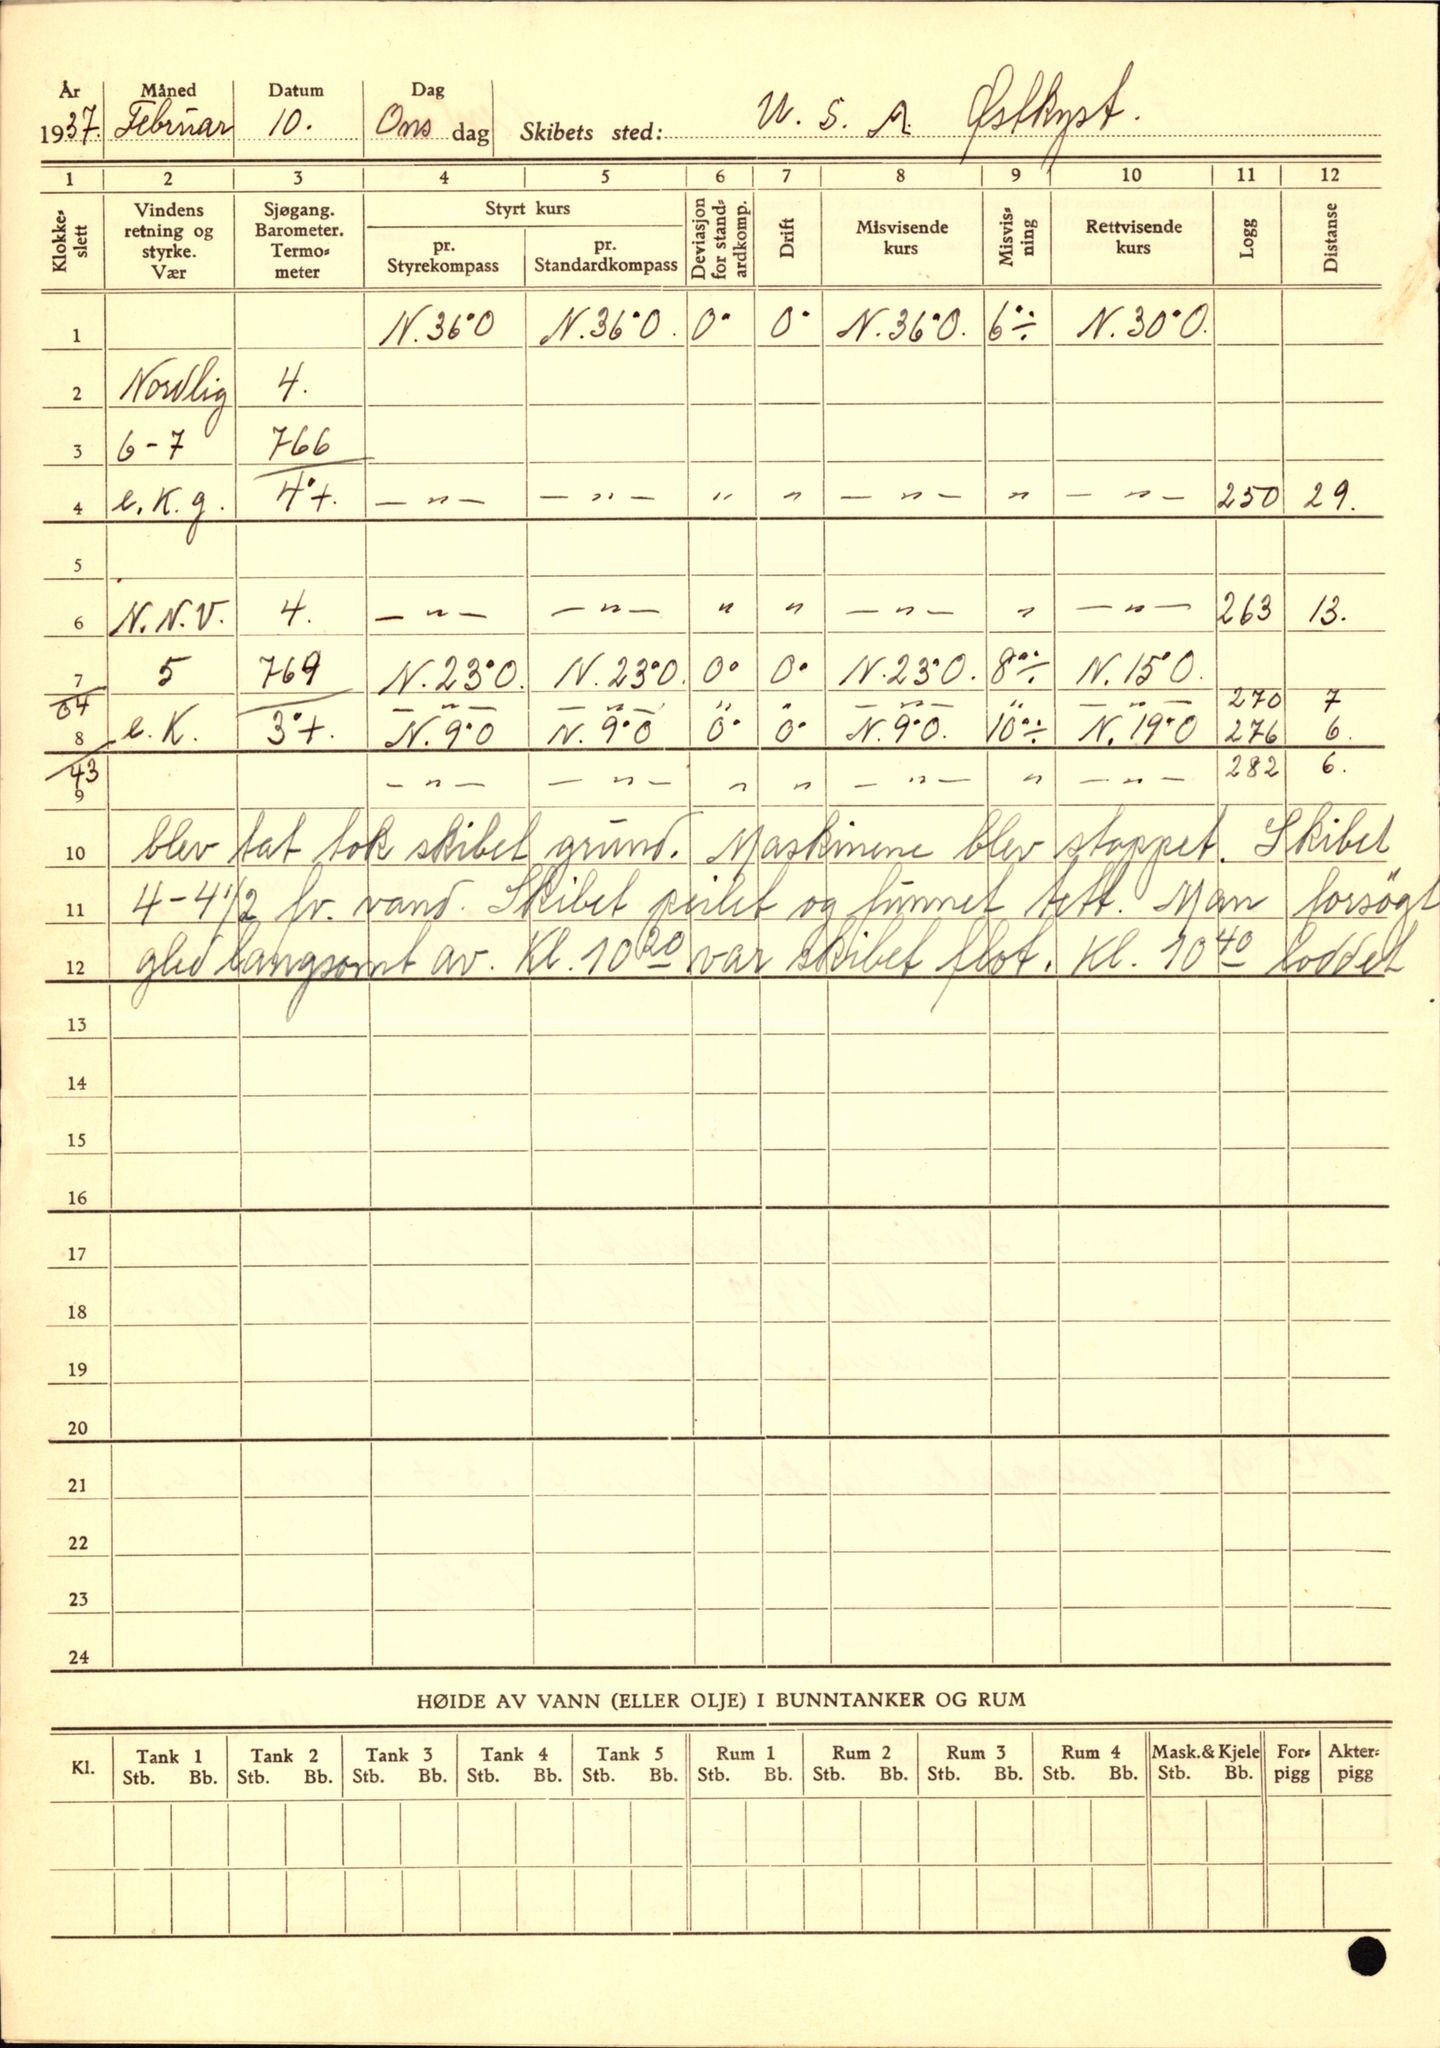 År Måned Datum Dag
1937. Februar 10. Ons dag Skibets sted: U. S. A. Østkyst.
1 2 3 4 5 6 7 8 9 10 11 12
Klokke-slett Vindens retning og styrke. Vær Sjøgang. Barometer. Termo-meter Styrt kurs pr. Styrekompass pr. Standardkompass Deviasjon for stand-ardkomp. Drift Misvisende kurs Misvis-ning Rettvisende kurs Logg Distanse
1 N.36°O N.36°O. 0° 0° N.36°O. 6°÷ N.30°O.
2 Nordlig 4.
3 6-7 766
4 e.K.g. 4°+. — " — — " — " " — " — " — " — 250 29.
5
6 N.N.V. 4. — " — — " — " " — " — " — " — 263 13.
7 5 769 N.23°O. N.23°O. 0° 0° N.23°O. 8°÷ N.15°O.
04 — " — — " — " " — " — " — " — 270 7
8 e.K. 3°+. N.9°O N.9°O 0° 0° N.9°O. 10°÷ N.19°O 276 6.
43 — " — — " — " " — " — " — " — 282 6.
9
10 blev tat tok skibet grund. Maskinene blev stoppet. Skibet
11 4-4 1/2 fv. vand. Skibet peilet og funnet tett. Man forsögt
12 gled langsomt av. Kl. 10 20 var skibet flot. Kl. 10 40 loddet
13
14
15
16
17
18
19
20
21
22
23
24
HØIDE AV VANN (ELLER OLJE) I BUNNTANKER OG RUM
Kl. Tank 1 Tank 2 Tank 3 Tank 4 Tank 5 Rum 1 Rum 2 Rum 3 Rum 4 Mask.&Kjele For-pigg Akter-pigg
Stb. Bb. Stb. Bb. Stb. Bb. Stb. Bb. Stb. Bb. Stb. Bb. Stb. Bb. Stb. Bb. Stb. Bb. Stb. Bb.